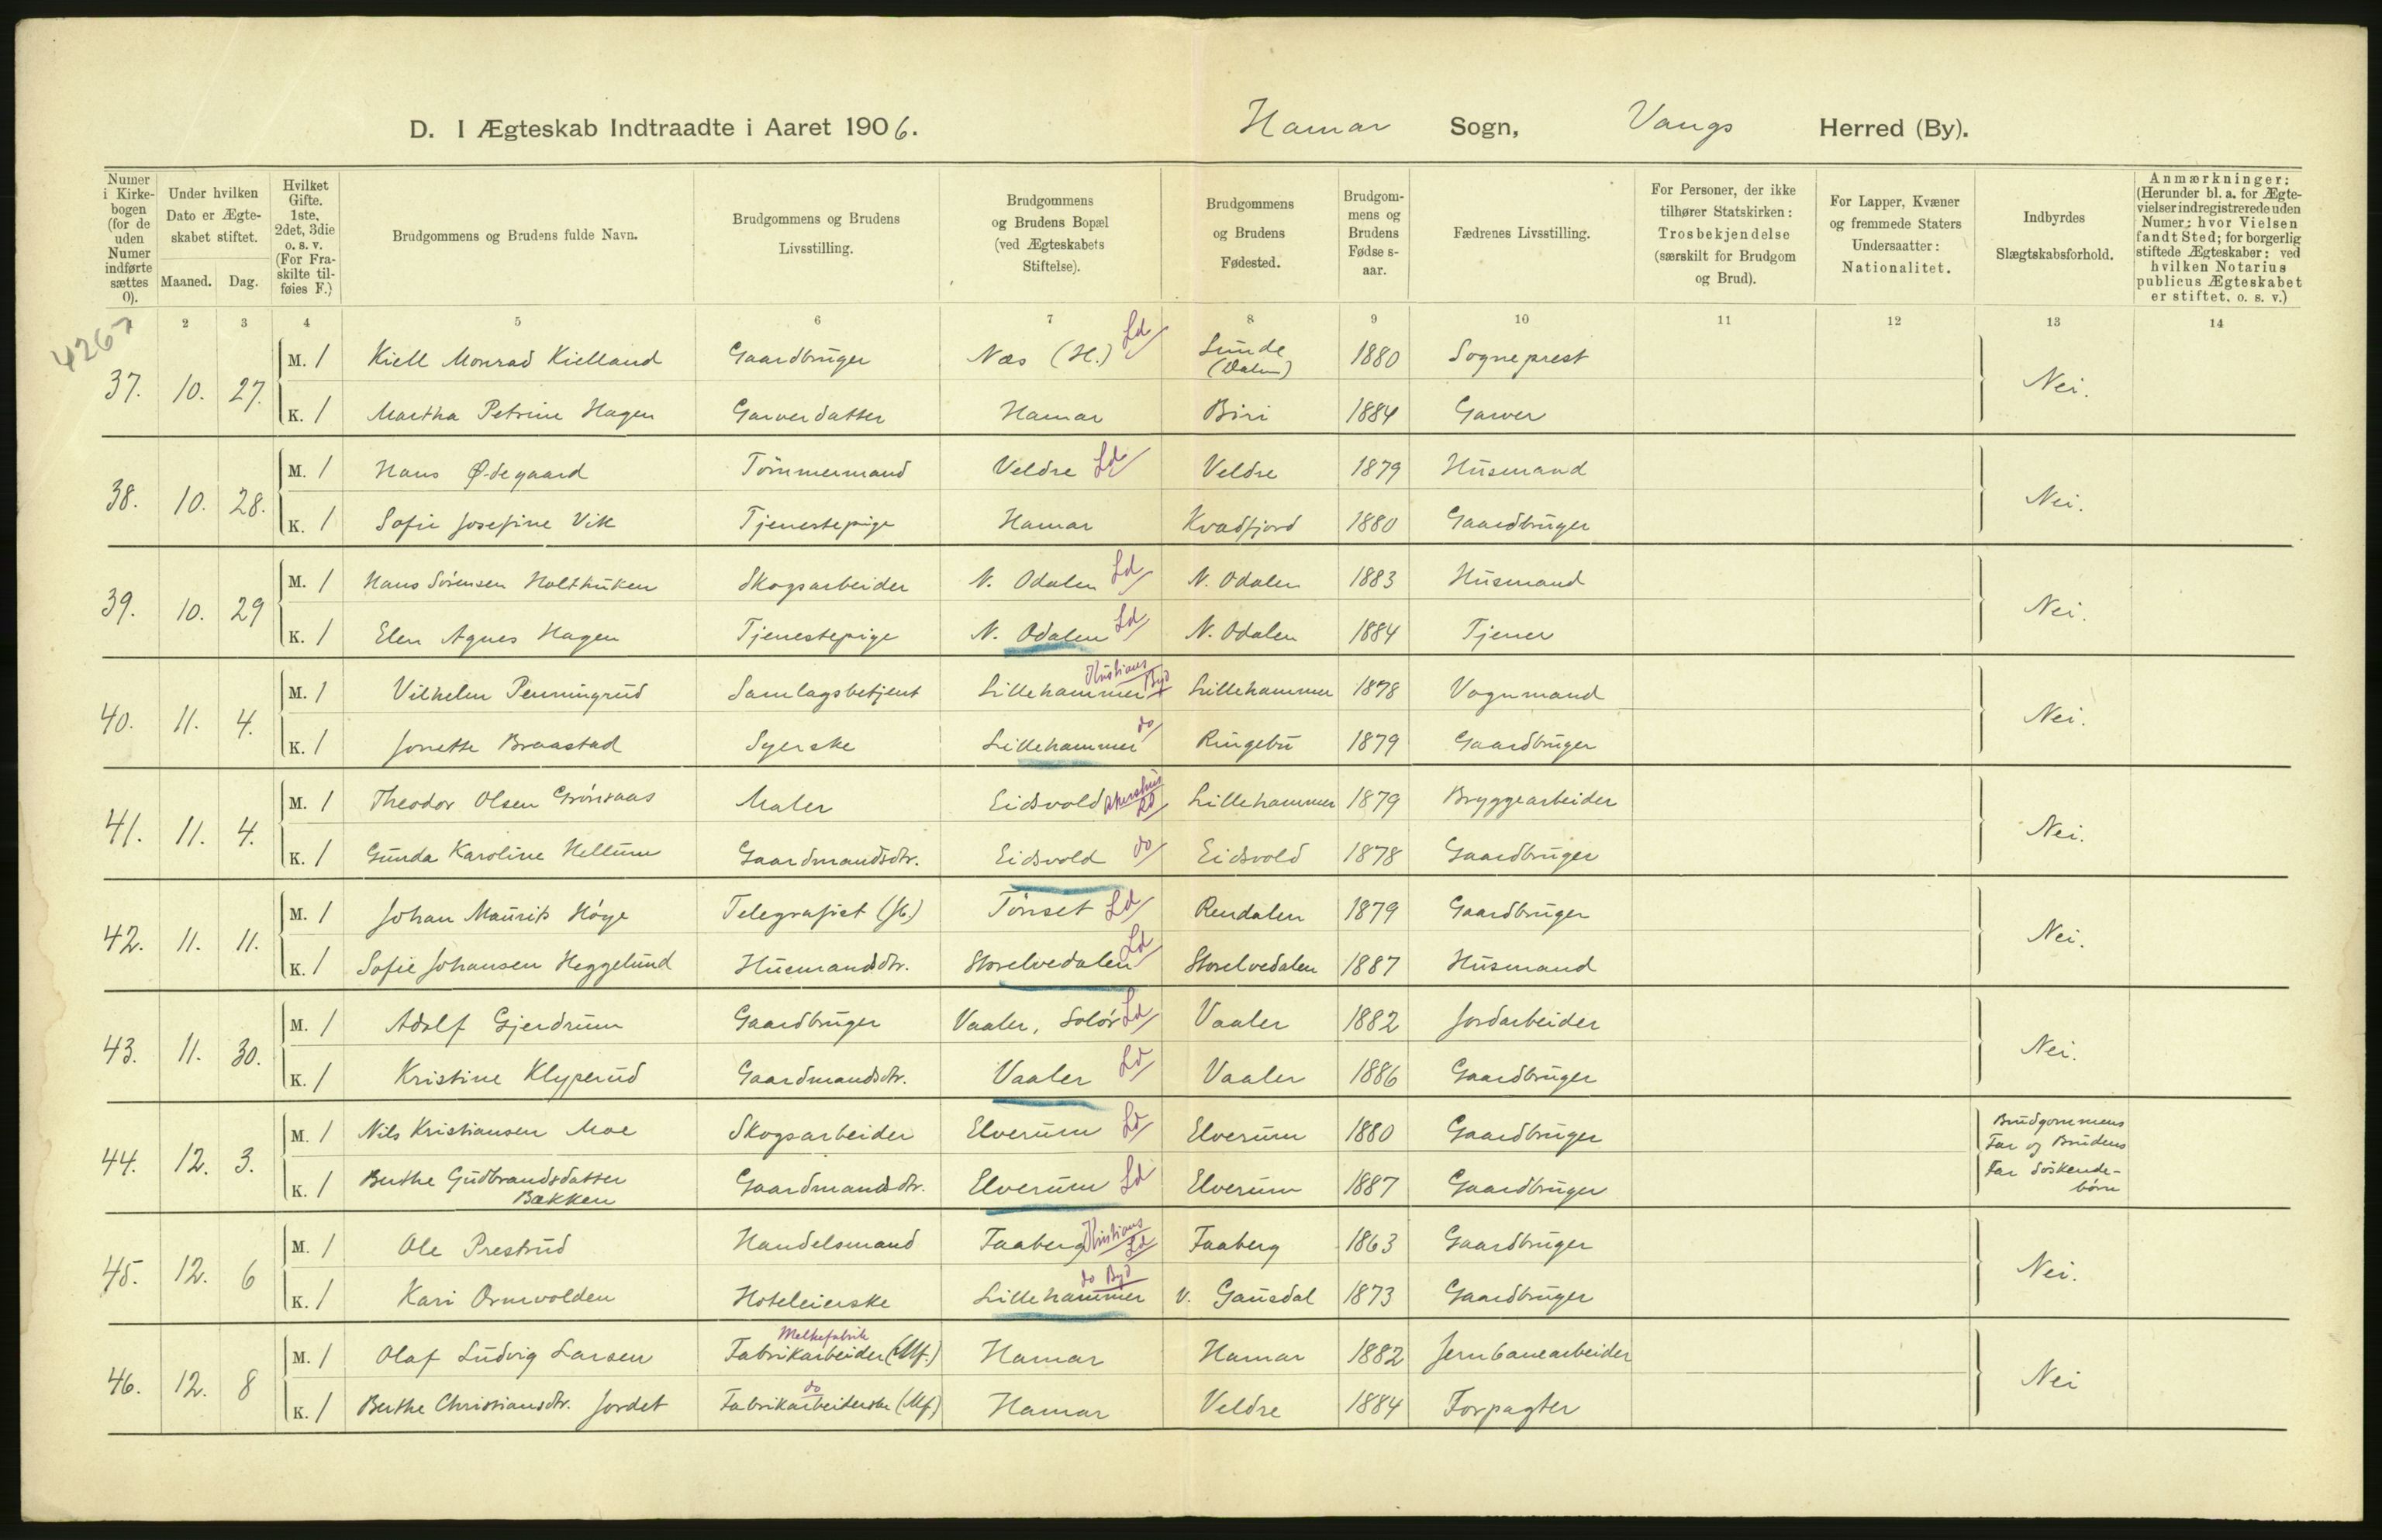 D. I Ægteskab Indtraadte i Aaret 1906. Hamar Sogn, Vangs Herred (By).
Numer i Kirkebogen (for de uden Numer indførte sættes 0).
Under hvilken Dato er Ægteskabet stiftet. Maaned. Dag.
Hvilket Gifte. 1ste, 2det, 3die o. s. v. (For Fraskilte tilføies F.)
Brudgommens og Brudens fulde Navn.
Brudgommens og Brudens Livsstilling.
Brudgommens og Brudens Bopæl (ved Ægteskabets Stiftelse).
Brudgommens og Brudens Fødested.
Brudgommens og Brudens Fødselsaar.
Fædrenes Livsstilling.
For Personer, der ikke tilhører Statskirken: Trosbekjendelse (særskilt for Brudgom og Brud).
For Lapper, Kvæner og fremmede Staters Undersaatter: Nationalitet.
Indbyrdes Slægtskabsforhold.
Anmærkninger: (Herunder bl. a. for Ægtevielser indregistrerede uden Numer: hvor Vielsen fandt Sted; for borgerlig stiftede Ægteskaber: ved hvilken Notarius publicus Ægteskabet er stiftet, o. s. v.)
2 3 4 5 6 7 8 9 10 11 12 13 14
4267
37. 10. 27. M. 1 Kiell Monrad Kielland Gaardbruger Næs (H.) Ld Lunde (Dalen) 1880 Sogneprest Nei.
K. 1 Martha Petrine Hagen Garverdatter Hamar Biri 1884 Garver
38. 10. 28. M. 1 Hans Ødegaard Tömmermand Veldre Ld Veldre 1879 Husmand Nei.
K. 1 Sofie Josefine Vik Tjenestepige Hamar Kvædfjord 1880 Gaardbruger
39. 10. 29 M. 1 Hans Sörensen Holthuken Skogsarbeider N. Odalen Ld N. Odalen 1883 Husmand Nei.
K. 1 Elen Agnes Hagen Tjenestepige N. Odalen Ld N. Odalen 1884 Tjener
40. 11. 4. M. 1 Vilhelm Penningrud Samlagsbetjent Lillehammer Kristians Byd Lillehammer 1878 Vognmand Nei.
K. 1 Jonette Braastad Syerske Lillehammer do Ringebu 1879 Gaardbruger
41. 11. 4. M. 1 Theodor Olsen Grönraas Maler Eidsvold Akershus Ld Lillehammer 1879 Bryggearbeider Nei.
K. 1 Gunda Karoline Hellum Gaardmandsdtr. Eidsvold do Eidsvold 1878 Gaardbruger
42. 11. 11. M. 1 Johan Maurits Höye Telegrafist Tönset Ld Rendalen 1879 Gaardbruger Nei.
K. 1 Sofie Johansen Heggelund Husmandsdtr. Storelvedalen Ld Storelvedalen 1887 Husmand
43. 11. 30. M. 1 Adolf Gjerdrum Gaardbruger Vaaler, Solör Ld Vaaler 1882 Jordarbeider Nei.
K. 1 Kristine Klyperud Gaardmandsdtr. Vaaler Ld Vaaler 1886 Gaardbruger
44. 12. 3. M. 1 Nils Kristiansen Moe Skogsarbeider Elverum Ld Elverum 1880 Gaardbruger Brudgommens Far og Brudens
K. 1 Berthe Gudbrandsdatter Bækken Gaardmandsdtr. Elverum Ld Elverum 1887 Gaardbruger Far Söskende-börn
45. 12. 6 M. 1 Ole Prestrud Handelsmand Faaberg Kristians Ld Faaberg 1863 Gaardbruger Nei.
K. 1 Kari Ormvolden Hoteleierske Lillehammer do Byd V. Gausdal 1873 Gaardbruger
46. 12. 8 M. 1 Olaf Ludvig Larsen Melkefabrik Fabrikarbeider (Mf.) Hamar Hamar 1882 Jernbanearbeider Nei
K. 1 Berthe Christiansdtr. Jordet do Fabrikarbeiderske (Mf) Hamar Veldre 1884 Forpagter